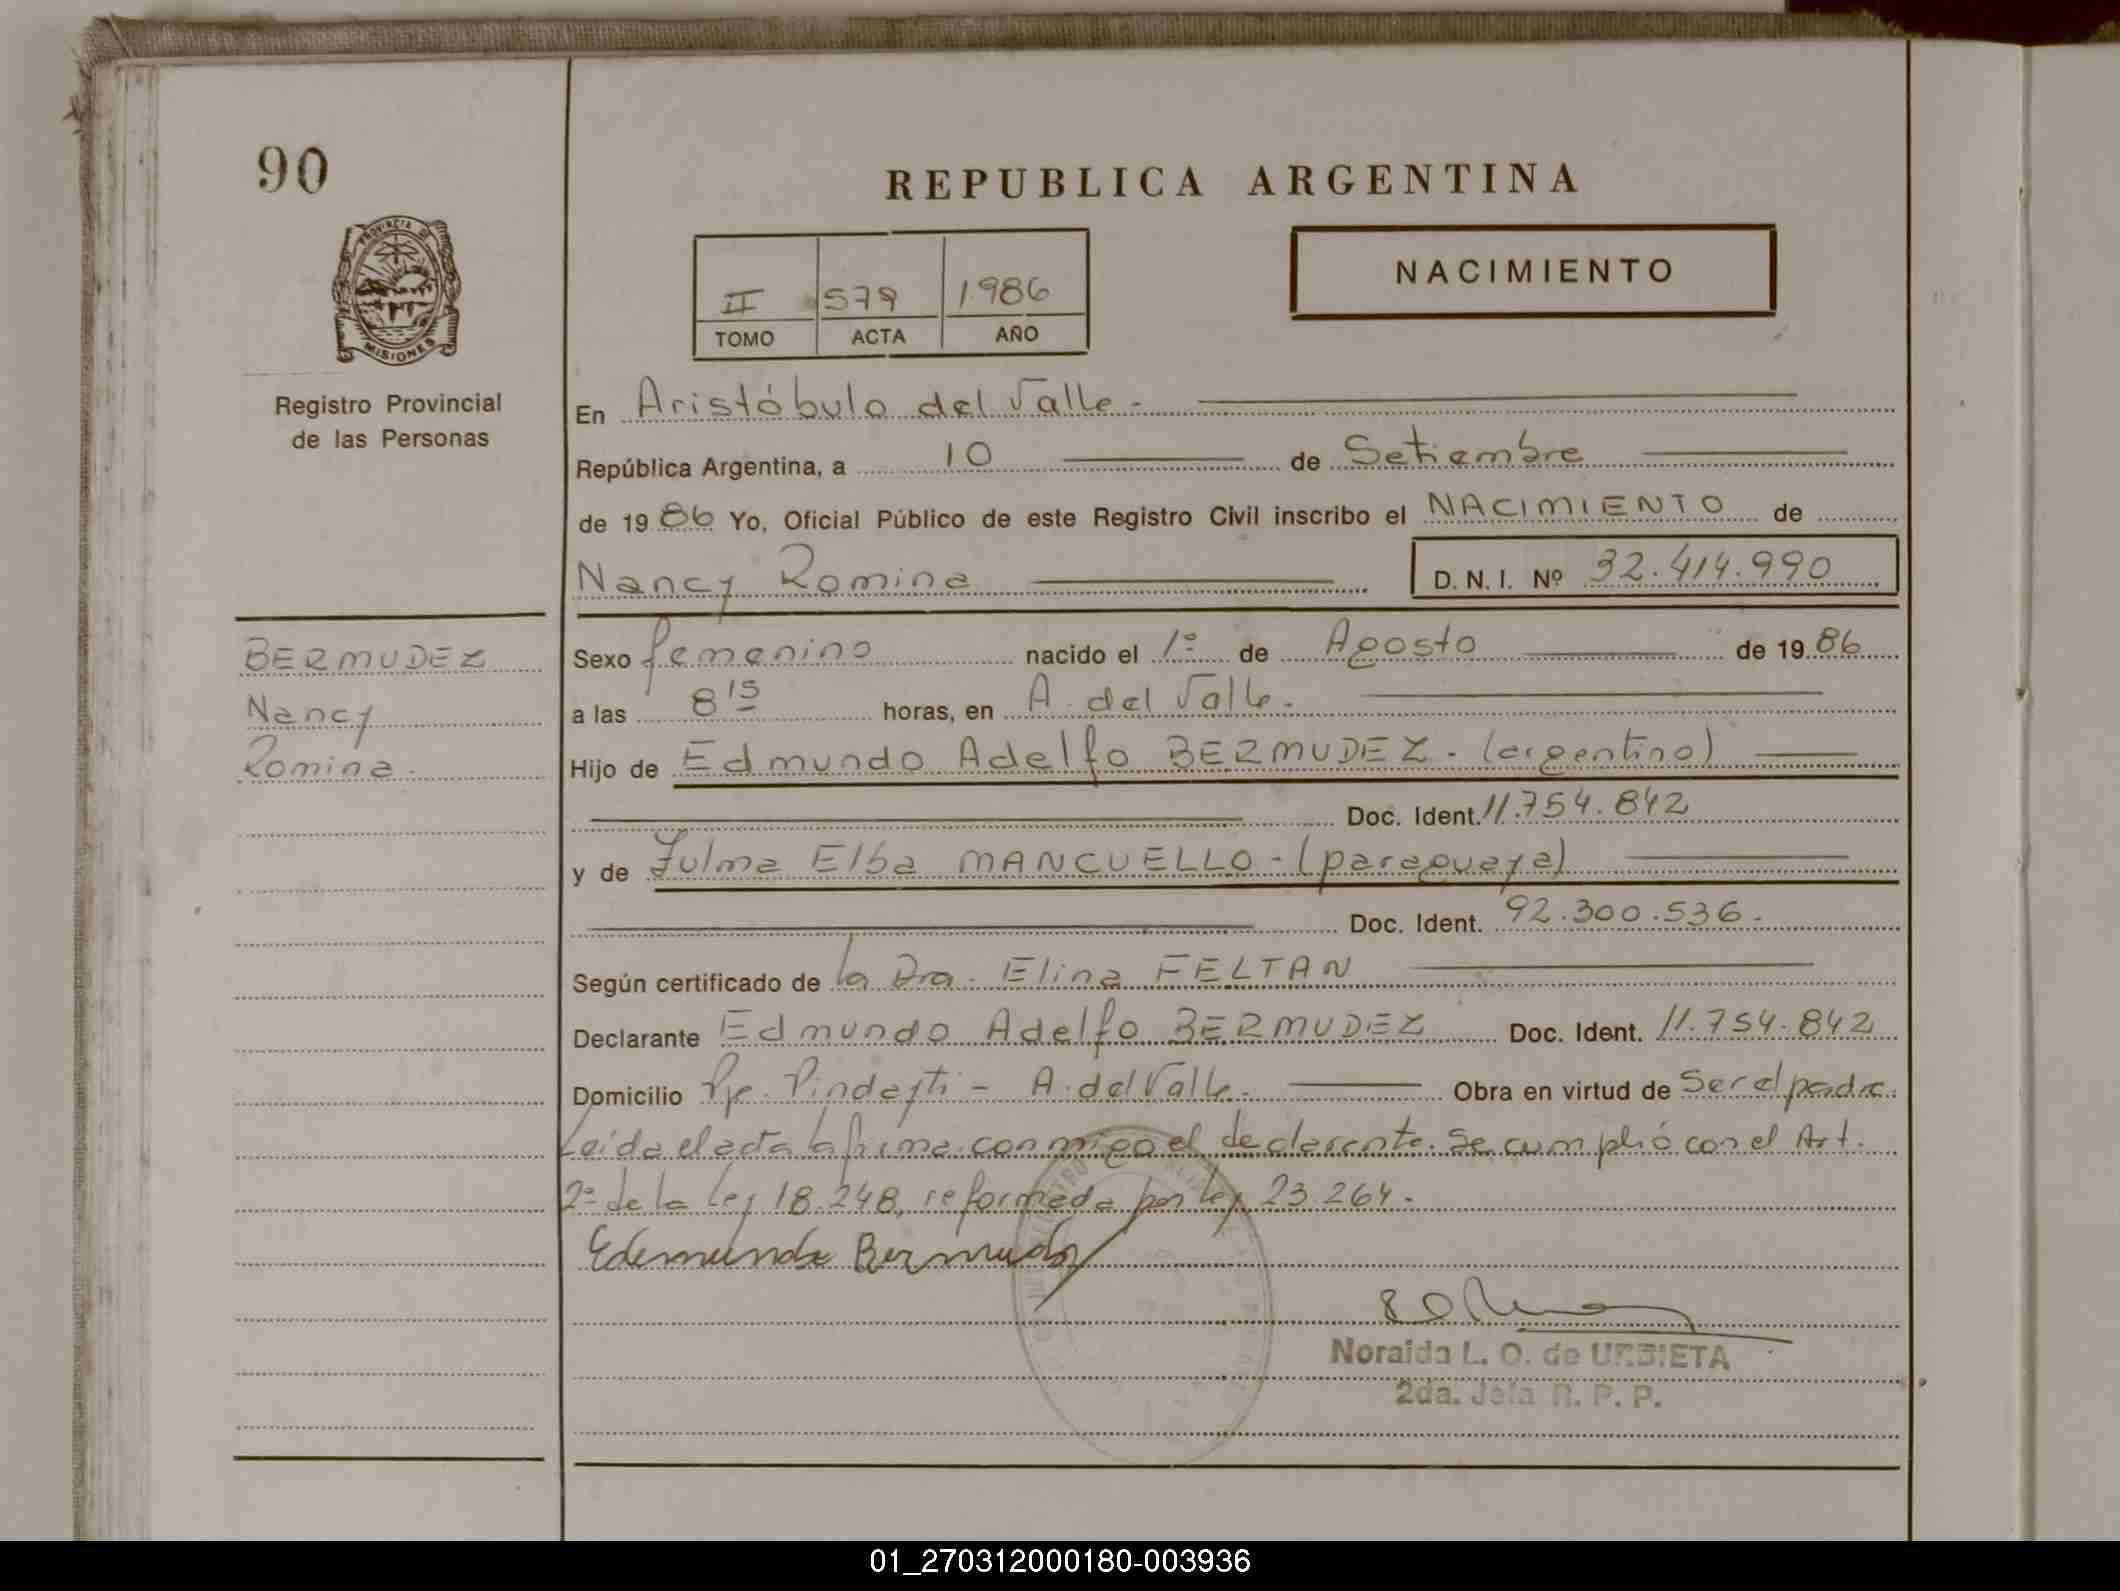 90
REPUBLICA ARGENTINA
PROVINCIA DE
MISIONES
Registro Provincial
de las Personas
II 579 1986
TOMO ACTA AÑO
NACIMIENTO
En Aristóbulo del Valle.
República Argentina, a 10 de Setiembre
de 1986 Yo, Oficial Público de este Registro Civil inscribo el NACIMIENTO de
Nancy Romina D. N. I. Nº 32.414.990
BERMUDEZ
Nancy
Romina.
Sexo femenino nacido el 1º de Agosto de 1986
a las 8 15 horas, en A. del Valle.
Hijo de Edmundo Adelfo BERMUDEZ - (argentino)
Doc. Ident. 11.754.842
y de Zulma Elba MANCUELLO - (paraguaya)
Doc. Ident. 92.300.536.
Según certificado de la Dra. Elina FELTAN
Declarante Edmundo Adelfo BERMUDEZ Doc. Ident. 11.754.842
Domicilio Pje. Pindayti - A. del Valle. Obra en virtud de Ser el padre.
Leída el acta la firma conmigo el declarante. Se cumplió con el Art.
2º de la Ley 18.248, reformada por ley 23.264.
Edemundo Bermudez
Noraida L. O. de URBIETA
2da. Jefa R. P. P.
01_270312000180-003936